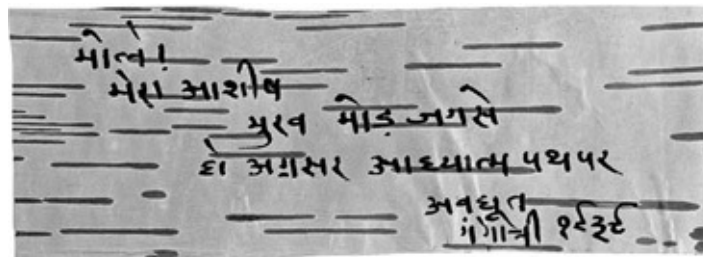 मोत्ने!
मेरा आशीष
मुख मोड़ जगसे
हो अग्रसर आध्यात्म पथपर
अवधूत
गंगोत्री १९३९